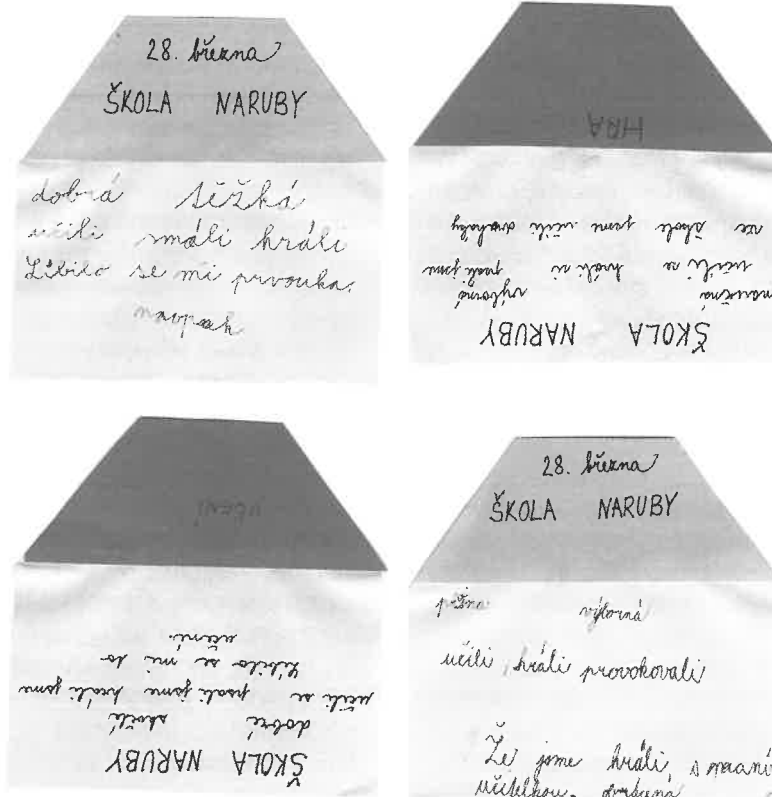 28. března
ŠKOLA NARUBY
dobrá těžká
učili smáli hráli
Líbilo se mi prvouka.
naopak
ŠKOLA NARUBY
naučná výborná
učili se hráli si psali jsme
ve škole jsme učili druháky
HRA
ŠKOLA NARUBY
dobré skvělé
učili se psali jsme hráli jsme
Líbilo se mi to
učení.
UČENÍ
28. března
ŠKOLA NARUBY
výborná
učili, hráli provokovali
Že jsme hráli s
učitelkou.